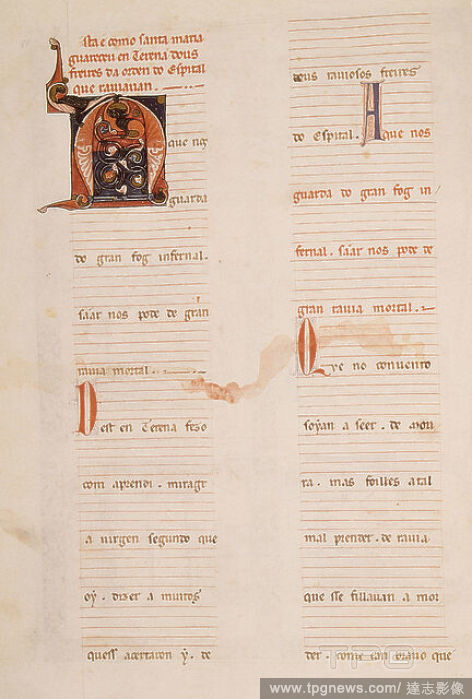 sta e como santa maria
guareceu en Terena dous
freires da orden do Espital
que raviavan.
A que nos
guarda
do gran fog infernal.
sãar nos pode de gran
ravia mortal.
D est en Terena fezo
com aprendi. miragr
a virgen segundo que
oý. dizer a muitos
quess acertaron ý. de
dous raviosos freires
do Espital. A que nos
guarda do gran fog in
fernal. sãar nos pode de
gran ravia mortal.
Q ve no convento
soyan a seer. de mon
ra. mas foilles atal
mal prender. de ravia
que sse fillavan a mor
der. come can bravo que
TPG
www.tpgnews.com/ 達志影像